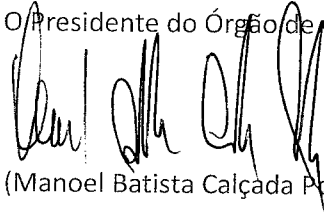 O Presidente do Órgão de
(Manoel Batista Calçada